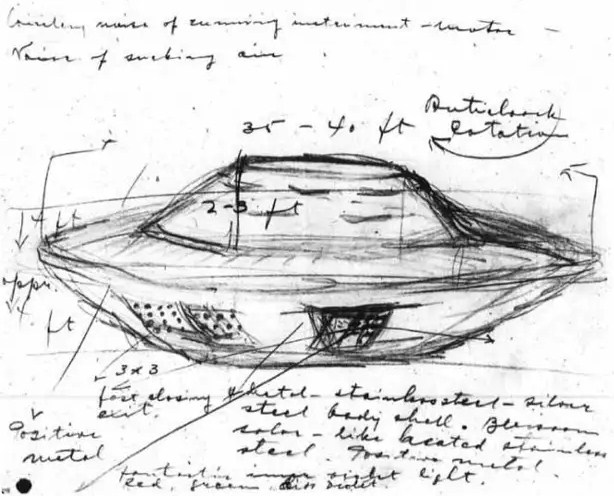 noise of running instrument - motor -
Noise of sucking air
Anticlock
Rotation
35 - 40 ft
2-3 ft
4 ft
appr.
4 ft
3 x 3
fast closing
exit.
Positive
metal
metal - stainless steel - silver
steel body shell.
color - like heated stainless
steel. Positive metal.
inner violet light.
Red, green,